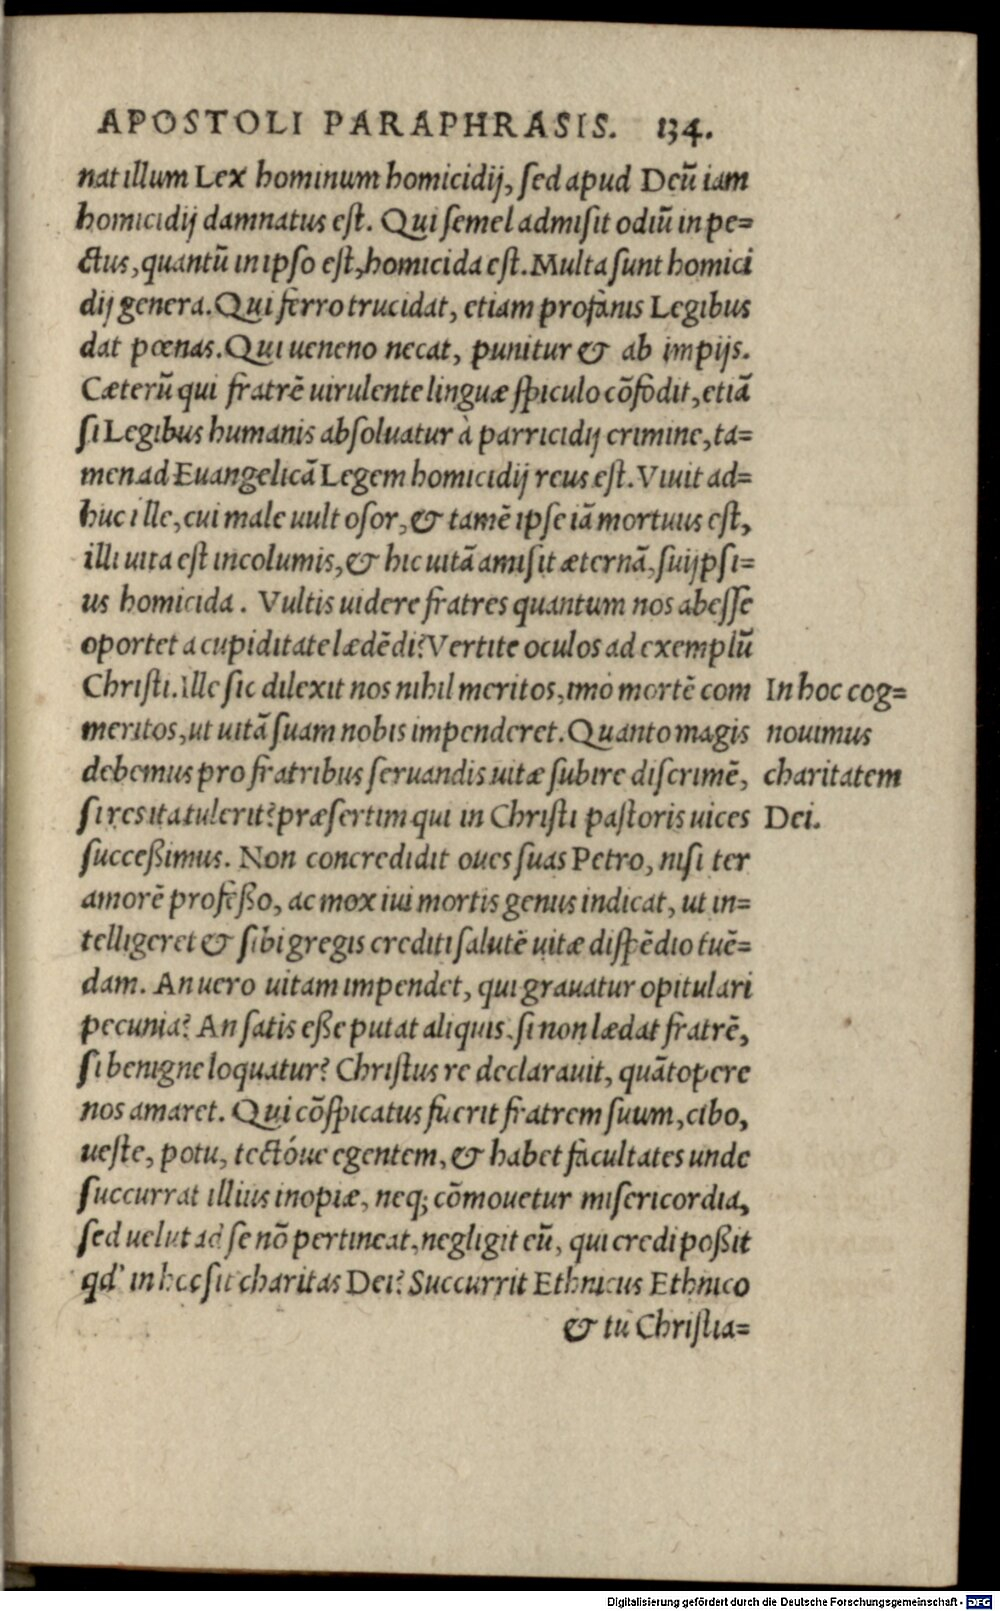 APOSTOLI PARAPHRASIS. 134.
nat illum Lex hominum homicidij, sed apud Deũ iam
homicidij damnatus est. Qui semel admisit odiũ in pe=
ctus, quantũ in ipso est, homicida est. Multa sunt homici
dij genera. Qui ferro trucidat, etiam profanis Legibus
dat pœnas. Qui ueneno necat, punitur & ab impijs.
Cæterũ qui fratrẽ uirulente linguæ spiculo cõfodit, etiã
si Legibus humanis absoluatur à parricidij crimine, ta=
men ad Euangelicã Legem homicidij reus est. Viuit ad=
huc ille, cui male uult osor, & tamẽ ipse iã mortuus est,
illi uita est incolumis, & hic uitã amisit æternã, suijpsi=
us homicida. Vultis uidere fratres quantum nos abesse
oportet a cupiditate lædẽdi? Vertite oculos ad exemplũ
Christi. Ille sic dilexit nos nihil meritos, imò mortẽ com
meritos, ut uitã suam nobis impenderet. Quanto magis
debemus pro fratribus seruandis uitæ subire discrimẽ,
si res ita tulerit? præsertim qui in Christi pastoris uices
succeßimus. Non concredidit oues suas Petro, nisi ter
amorẽ profeßo, ac mox iui mortis genus indicat, ut in=
telligeret & sibi gregis crediti salutẽ uitæ dispẽdio tuẽ=
dam. An uero uitam impendet, qui grauatur opitulari
pecunia? An satis eße putat aliquis, si non lædat fratrẽ,
si benigne loquatur? Christus re declarauit, quãtopere
nos amaret. Qui cõspicatus fuerit fratrem suum, cibo,
ueste, potu, tectóue egentem, & habet facultates unde
succurrat illius inopiæ, neq; cõmouetur misericordia,
sed uelut ad se nõ pertineat, negligit eũ, qui credi poßit
qd' in hoc sit charitas Dei? Succurrit Ethnicus Ethnico
& tu Christia=
In hoc cog=
nouimus
charitatem
Dei.
Digitalisierung gefördert durch die Deutsche Forschungsgemeinschaft - DFG